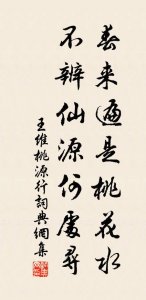 春来遍是桃花水
不辨仙源何处寻
王维桃源行词典网集